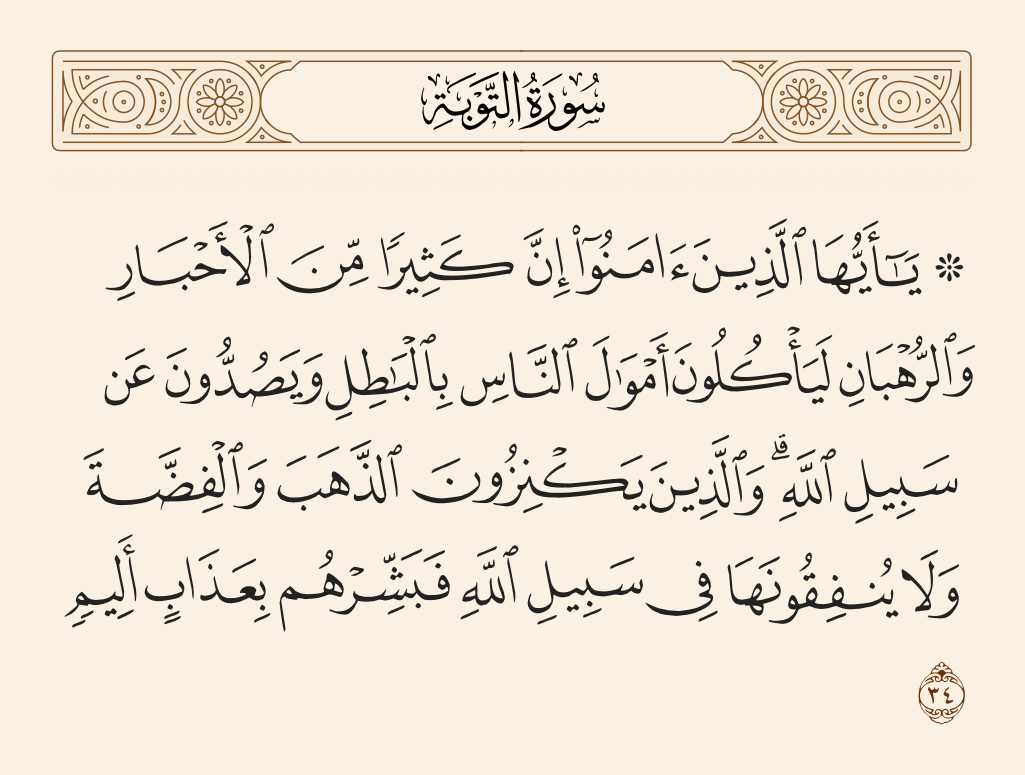 سُورَةُ التَّوۡبَةِ
۞ يَـٰٓأَيُّهَا ٱلَّذِينَ ءَامَنُوٓاْ إِنَّ كَثِيرًا مِّنَ ٱلۡأَحۡبَارِ
وَٱلرُّهۡبَانِ لَيَأۡكُلُونَ أَمۡوَٰلَ ٱلنَّاسِ بِٱلۡبَٰطِلِ وَيَصُدُّونَ عَن
سَبِيلِ ٱللَّهِۗ وَٱلَّذِينَ يَكۡنِزُونَ ٱلذَّهَبَ وَٱلۡفِضَّةَ
وَلَا يُنفِقُونَهَا فِي سَبِيلِ ٱللَّهِ فَبَشِّرۡهُم بِعَذَابٍ أَلِيمٖ
٣٤